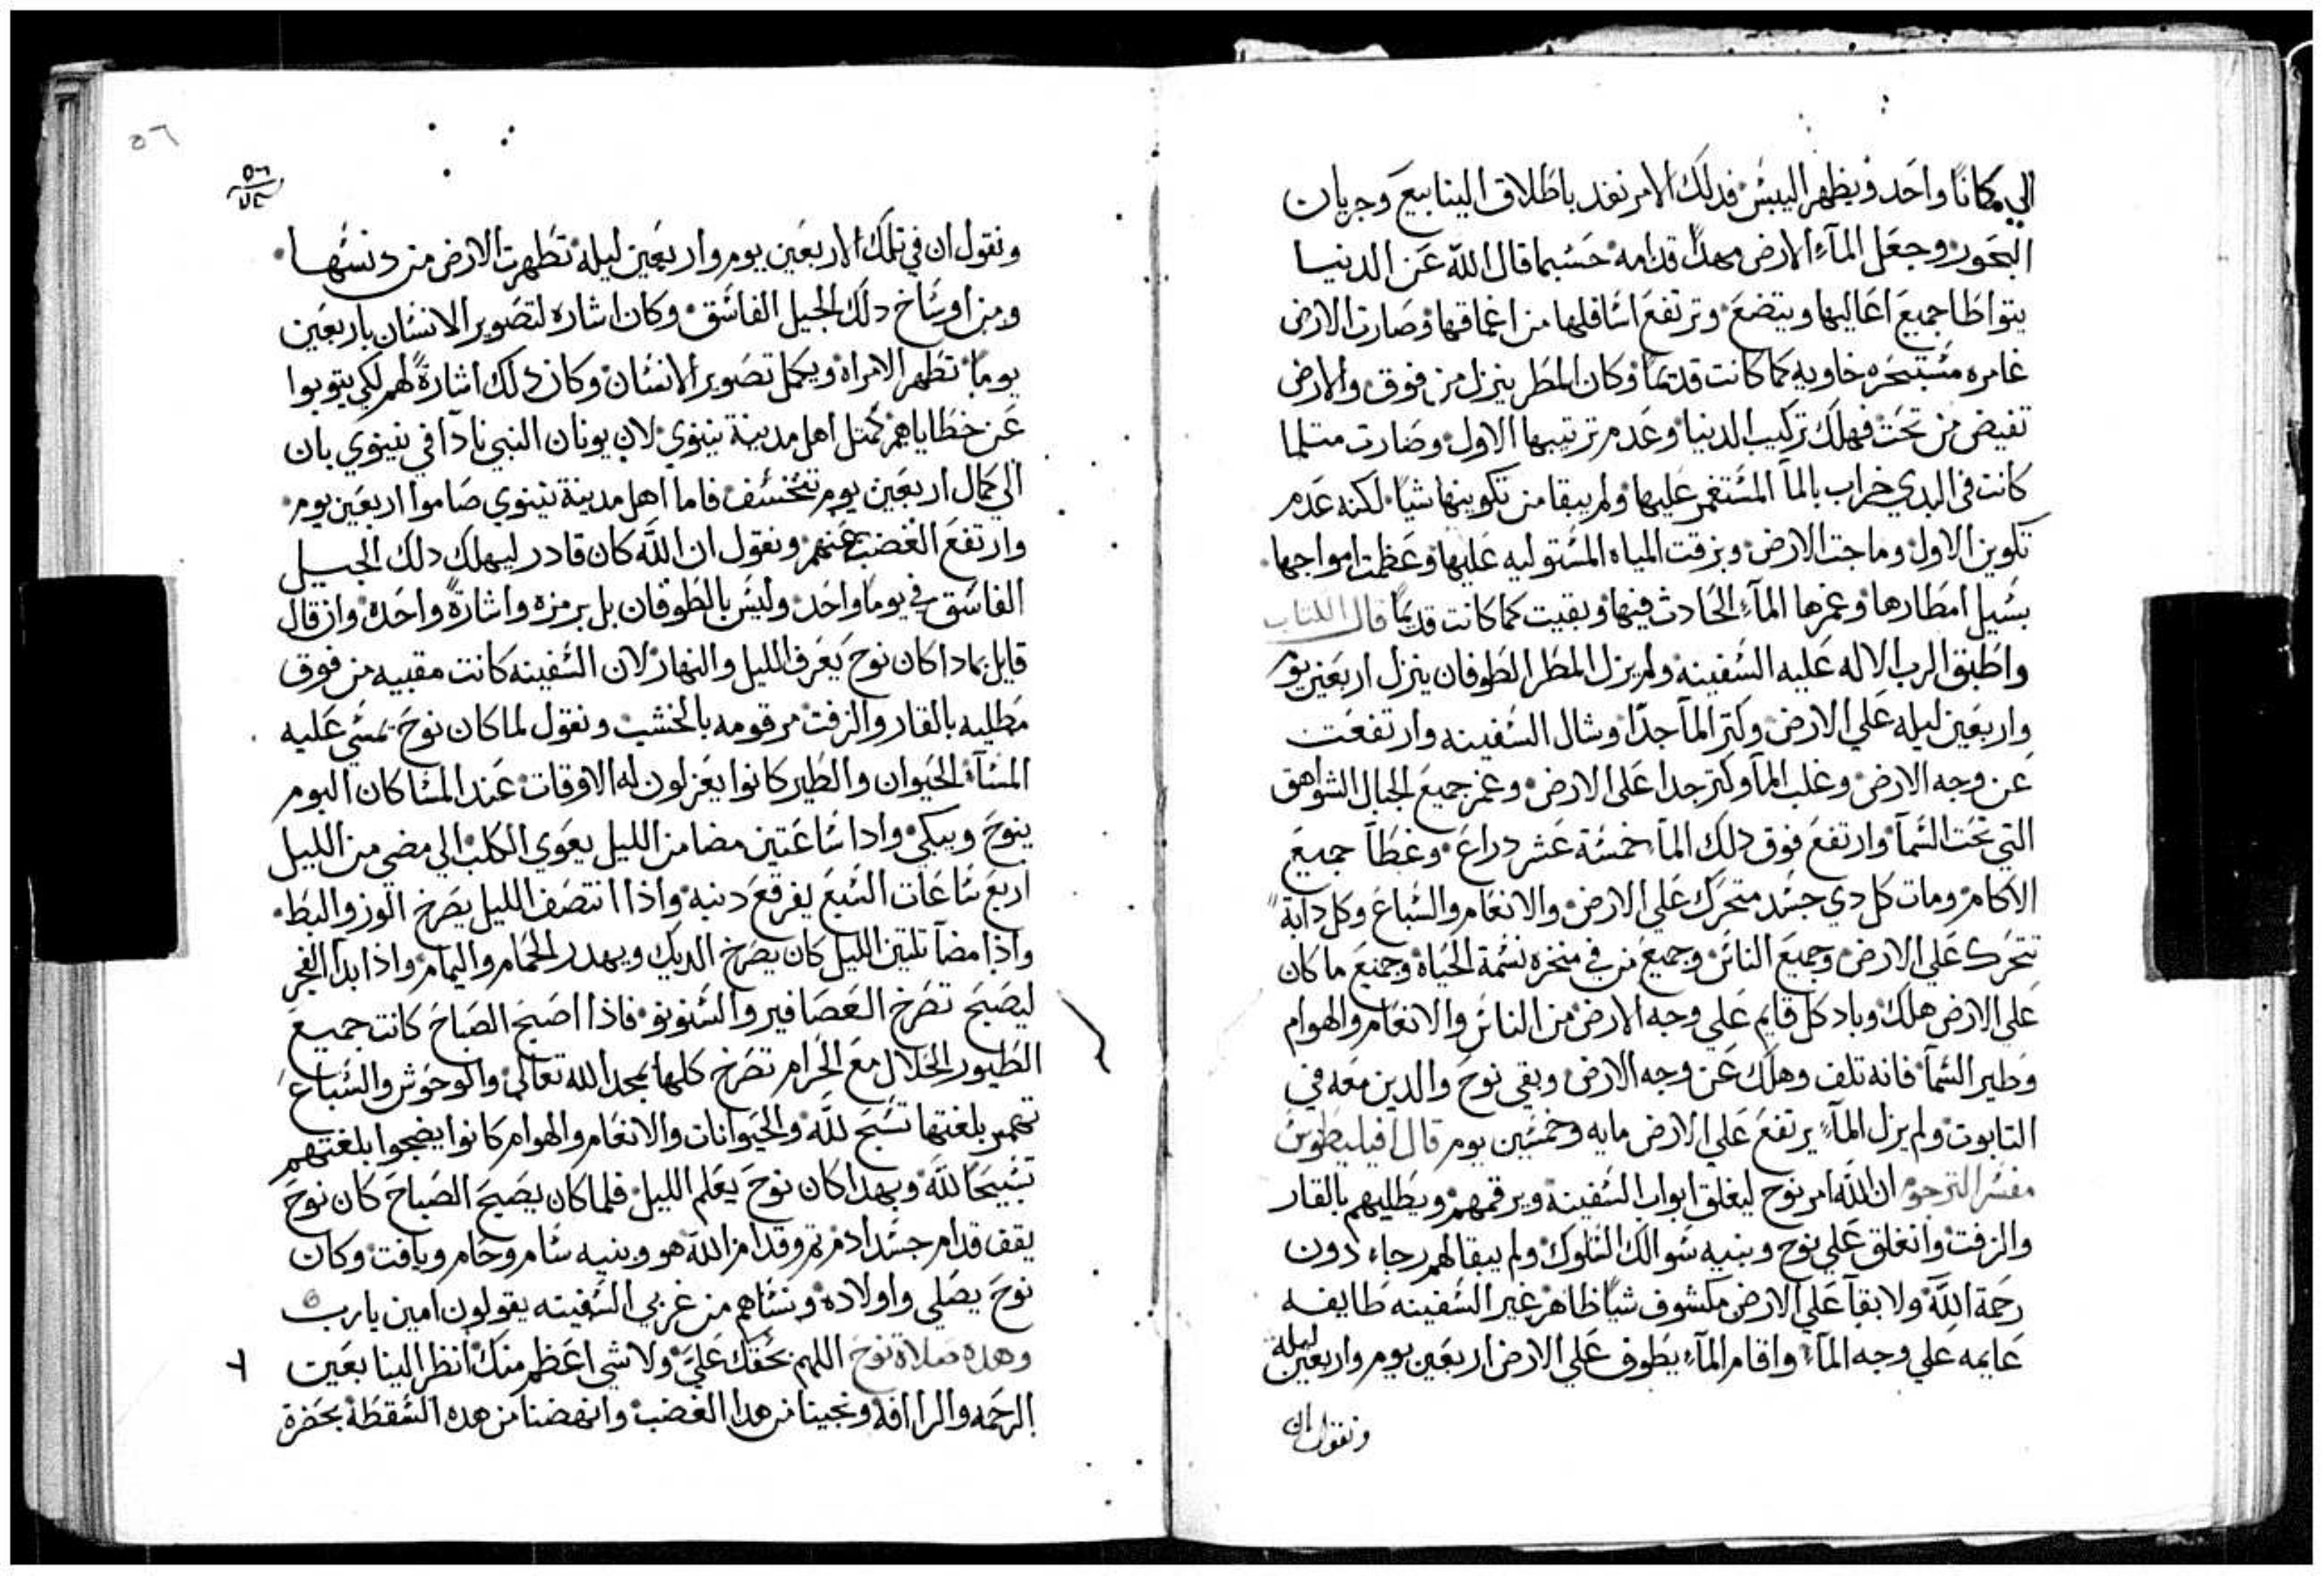 الي مكانًا واحد ويظهر اليبس فدلك الامر نفد باطلاق الينابيع وجريان
البحور وجعل المآء الارض مهدًا قدامه حسبما قال الله عن الدنيا
يتواطا جميع اعاليها ويتضع وترتفع اسافلها من اعماقها وصارت الارض
غامره مستبحره خاويه كما كانت قديمًا وكان المطر ينزل من فوق والارض
تفيض من تحت فهلك تركيب الدنيا وعدم ترتيبها الاول وصارت متلما
كانت في البدي خراب بالمآ المستغمر عليها ولم يبقا من تكوينها شيًا لكنه عدم
تكوين الاول وماجت الارض وبزقت المياه المستوليه عليها وعظمت امواجها
بسيل امطارها وغمرها المآء الحادث فيها وبقيت كما كانت قديمًا قال الكتاب
واطبق الرب الاله عليه السفينه ولم يزل المطر الطوفان ينزل اربعين يوم
واربعين ليله علي الارض وكتر المآ جدًا وشال السفينه وارتفعت
عن وجه الارض وغلب المآ وكتر جدا على الارض وغمر جميع الجبال الشواهق
التي تحت السمآ وارتفع فوق دلك المآ خمسة عشر دراع وغطآ جميع
الاكام ومات كل دي جسد متحرك علي الارض والانعام والسباع وكل دابة
تتحرك علي الارض وجميع الناس وجميع من في منخره نسمة الحياة وجميع ما كان
على الارض هلك وباد كل قايم علي وجه الارض من الناس والانعام والهوام
وطير السمآ فانه تلف وهلك عن وجه الارض وبقي نوح والدين معه في
التابوت ولم يزل المآء يرتفع علي الارض مايه وخمسين يوم قال افيليطوس
مفسر الترجوم ان الله امر نوح ليغلق ابواب السفينة ويرقمهم ويطليهم بالقار
والزفت وانغلق علي نوح وبنيه شوالك السلوك ولم يبقا لهم رجاء دون
رحمة الله ولا بقآ علي الارض مكشوف شيًا ظاهر غير السفينه طايفه
عايمه علي وجه المآء واقام المآء يطوف علي الارض اربعين يوم واربعين ليلة
ونقول ان
٥٦
ونقول ان في تلك الاربعين يوم واربعين ليلة تطهرت الارض من دنسها
ومن اوساخ دلك الجيل الفاسق وكان اشاره لتصوير الانسان باربعين
يومًا تطهر الامراة ويكمل تصوير الانسان وكان دلك اشارةً لهم لكي يتوبوا
عن خطاياهم كمتل اهل مدينة نينوي لان يونان النبي نادآ في نينوي بان
الي كمال اربعين يوم تتخسف فاما اهل مدينة نينوي صاموا اربعين يوم
وارتفع الغضب عنهم ونقول ان الله كان قادر ليهلك دلك الجيل
الفاسق في يومًا واحد وليس بالطوفان بل برمزه واشارةً واحدة وان قال
قايل بمادا كان نوح يعرف الليل والنهار لان السفينه كانت مقبيه من فوق
مطليه بالقار والزفت مرقومه بالخشب ونقول لما كان نوح تمسي عليه
المسآء الحيوان والطير كانوا يعزلون له الاوقات عند المسا كان البوم
ينوح ويبكي وادا ساعتين مضا من الليل يعوي الكلب الي مضي من الليل
اربع ساعات السبع يفرقع دنبه واذا انتصف الليل يصرخ الوز والبط
واذا مضآ تلتين الليل كان يصرخ الديك ويهدر الحمام واليمام واذا ابدآ الفجر
ليصبح تصرخ العصافير والسنونو فاذا اصبح الصباح كانت جميع
الطيور الحلال مع الحرام تصرخ كلها بمجد الله تعالى والوحوش والسباع
تهمر بلغتها تسبح لله والحيوانات والانعام والهوام كانوا يضجوا بلغتهم
تسبيحًا لله وبهدا كان نوح يعلم الليل فلما كان يصبح الصباح كان نوح
يقف قدام جسد ادم تم وقدام الله هو وبنيه سام وحام ويافت وكان
نوح يصلي واولاده ونساهم من غربي السفينه يقولون امين يارب
وهده صلاة نوح اللهم بحقك عليّ ولا شي اعظم منك انظر الينا بعين
الرحمه والرافة ونجينا من هدا الغضب وانهضنا من هده السقطة بحضرة